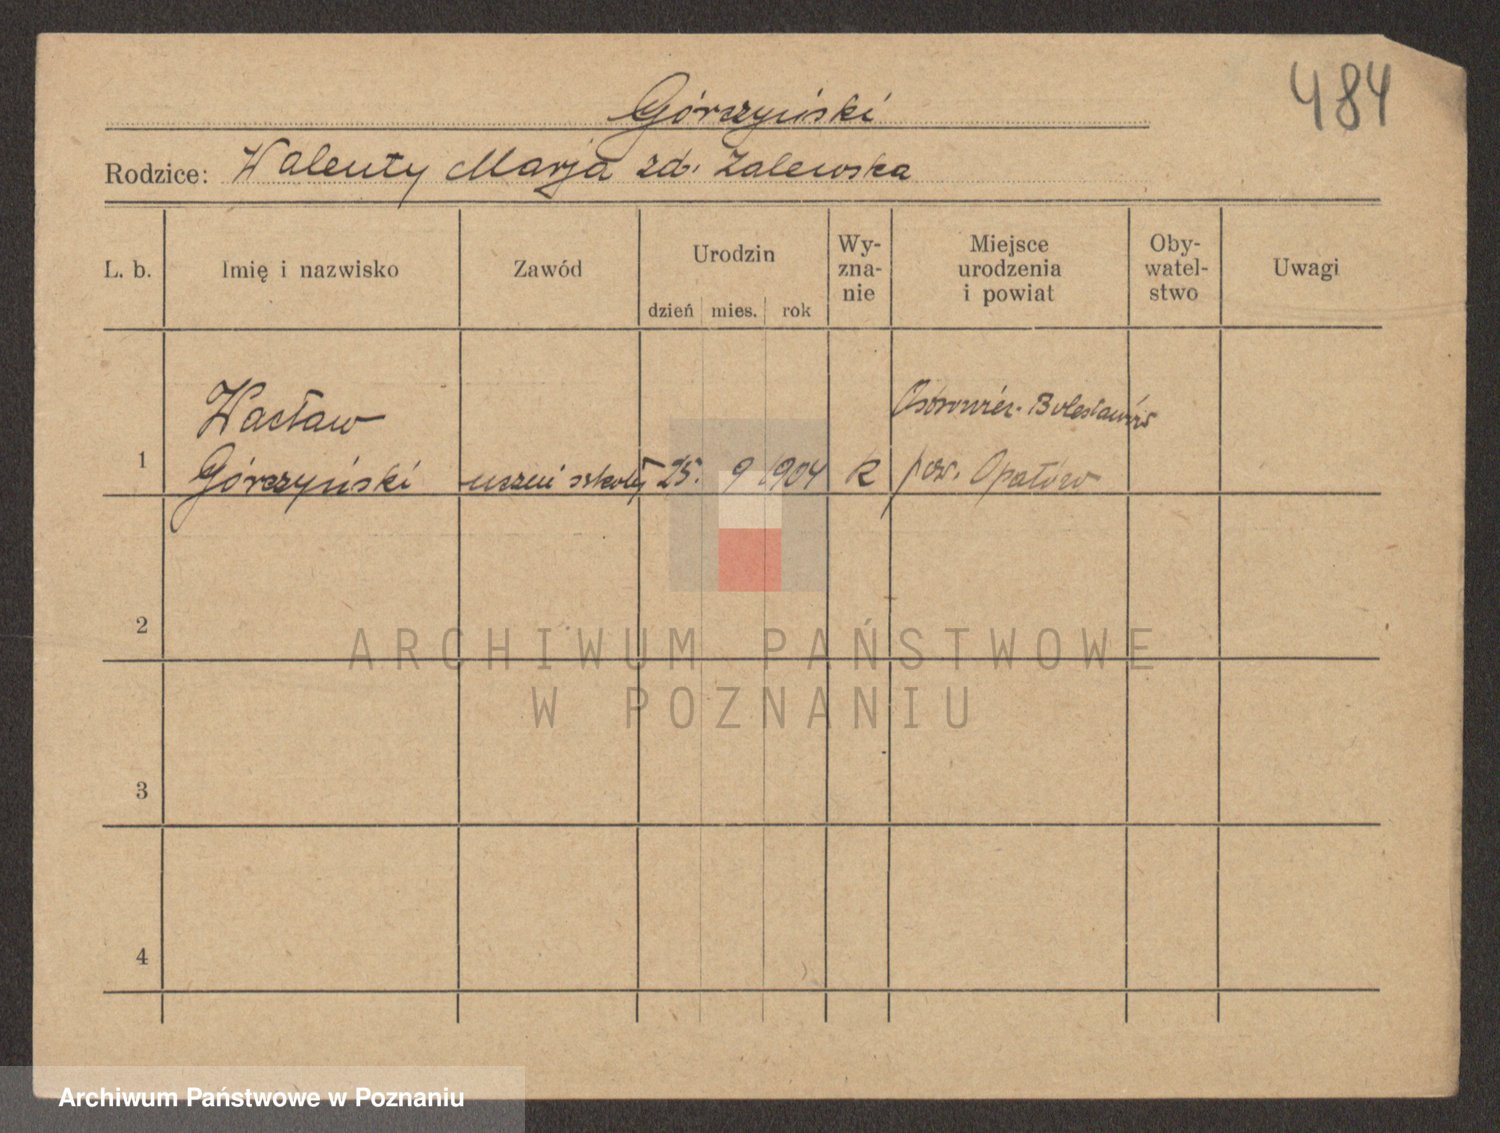 484
Górczyński
Rodzice: Walenty Marja zd. Zalewska
L. b.
Imię i nazwisko
Zawód
Urodzin
dzień mies. rok
Wy-
zna-
nie
Miejsce
urodzenia
i powiat
Oby-
watel-
stwo
Uwagi
1
Wacław
Górczyński
uczeń szkoły 25. 9 1904 k
pow. Opatów
2
3
4
ARCHIWUM PAŃSTWOWE
W POZNANIU
Archiwum Państwowe w Poznaniu